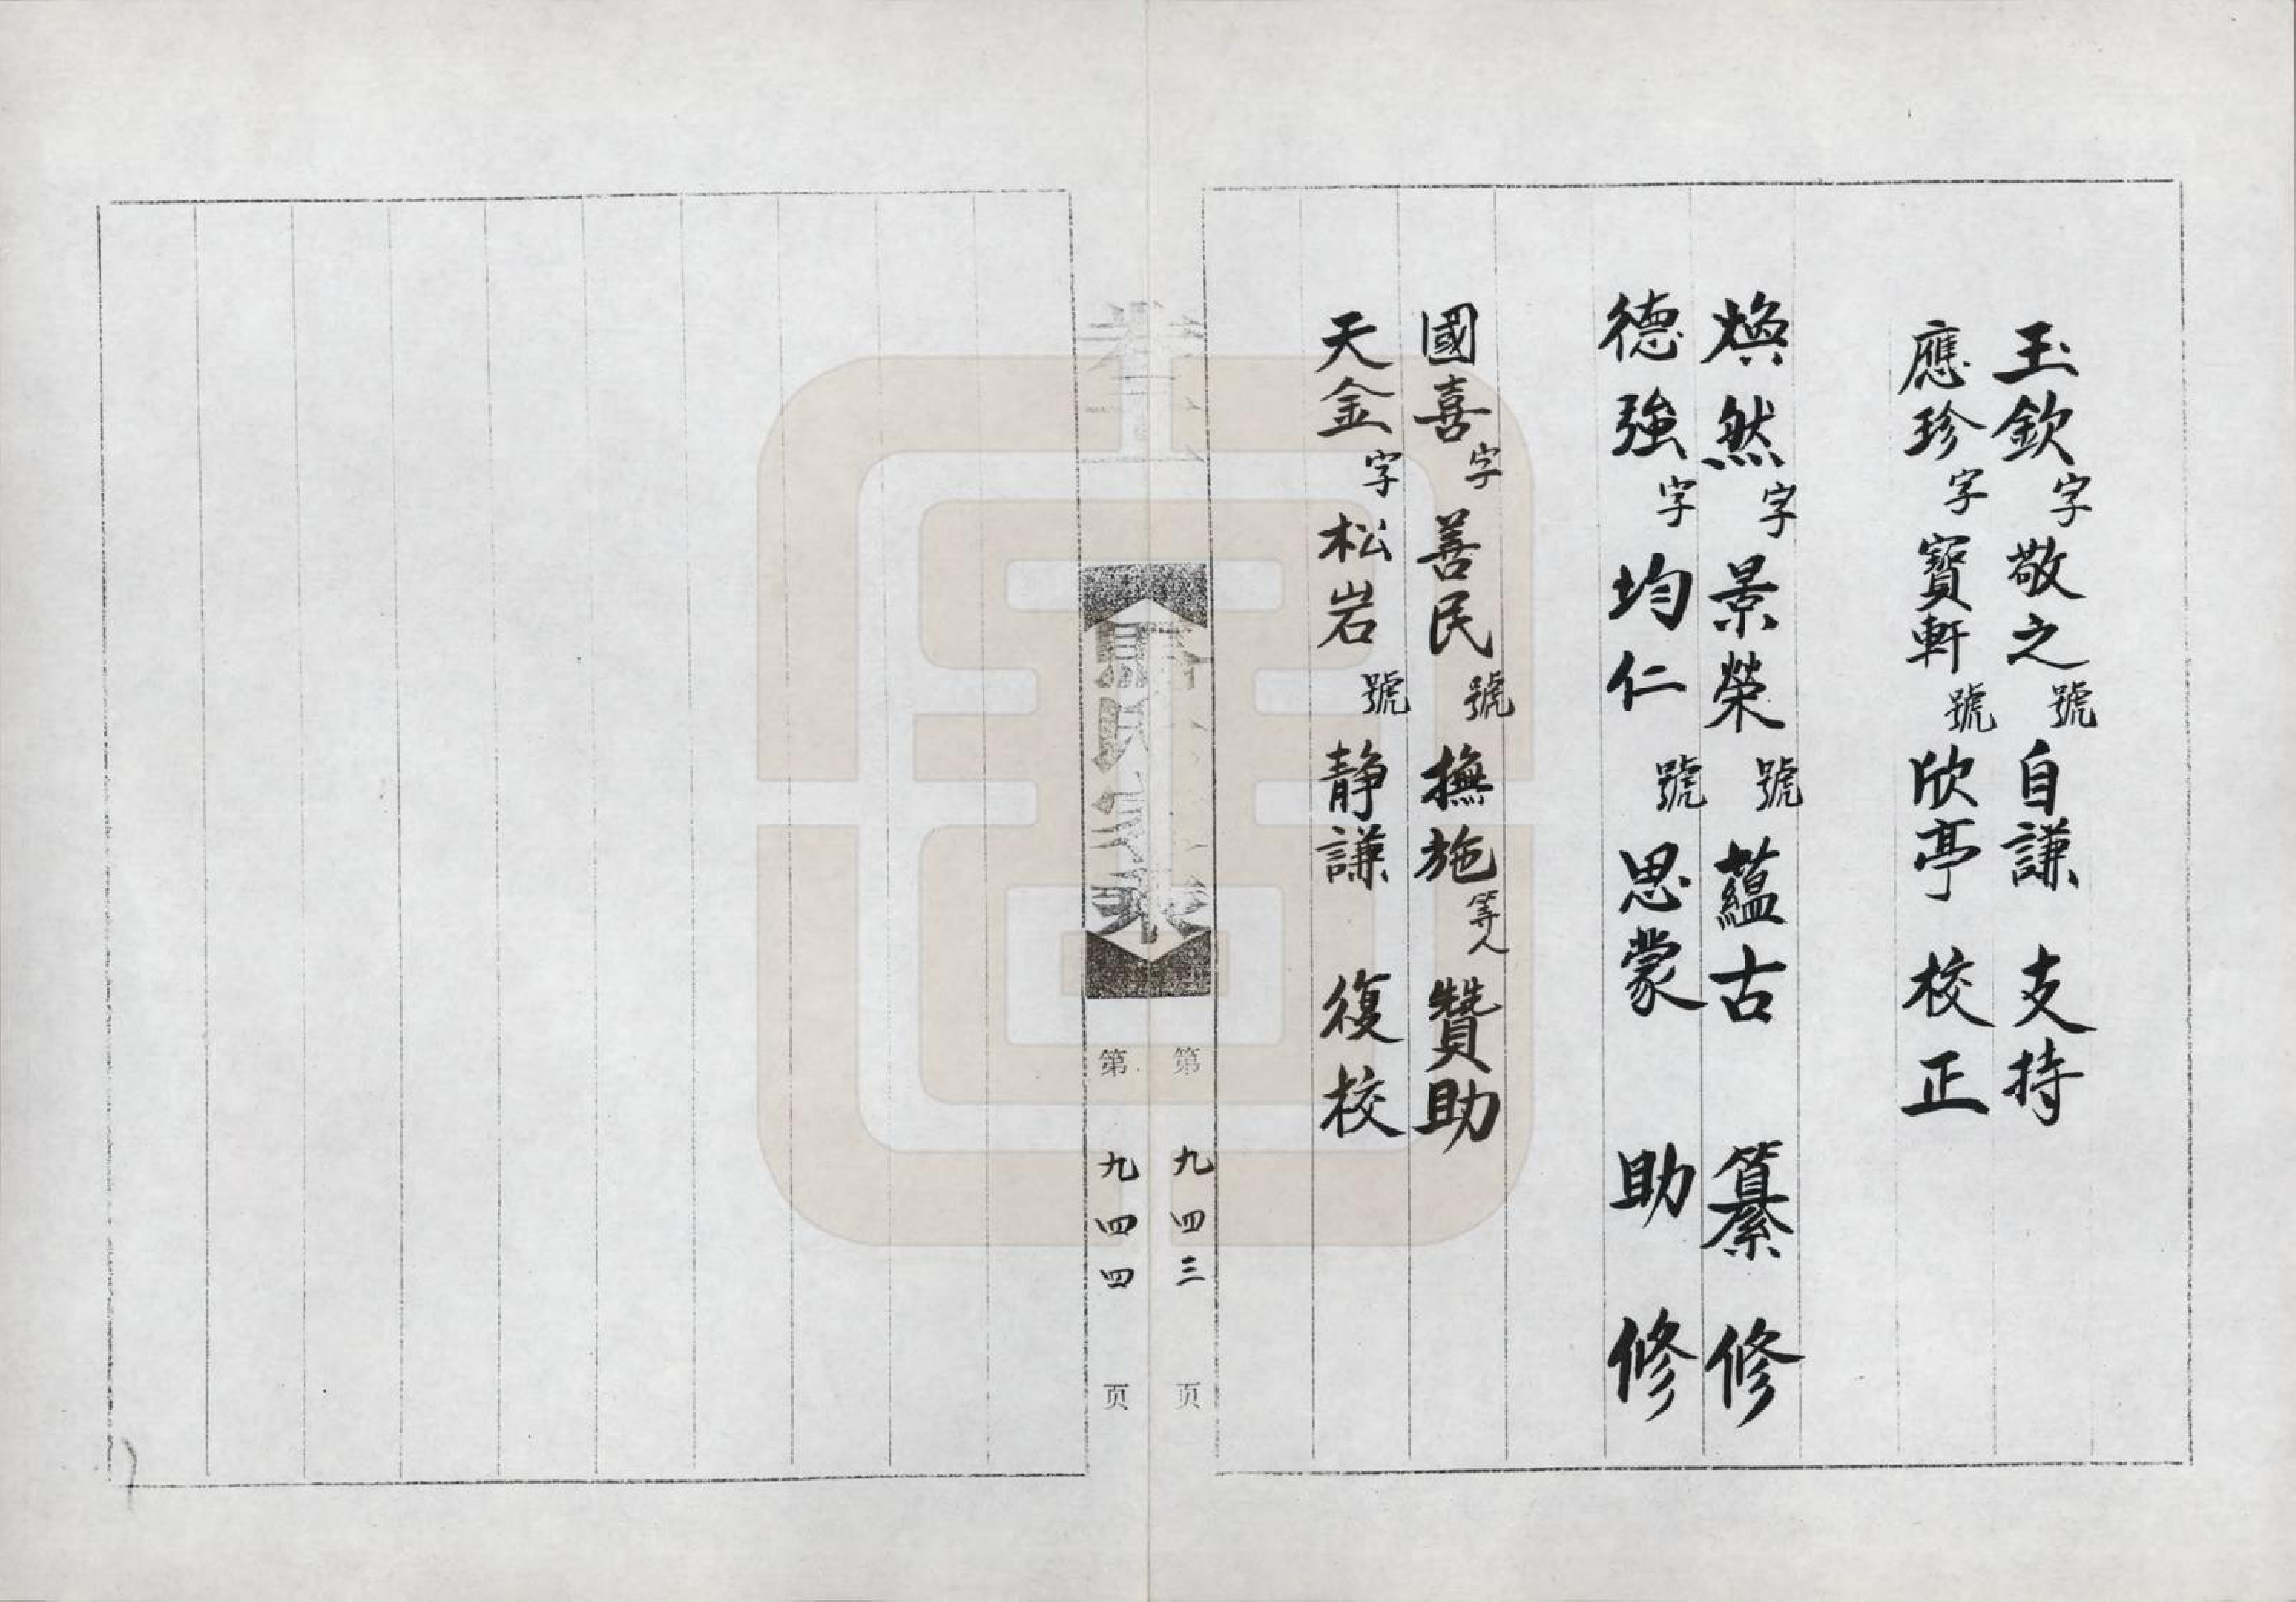 玉欽字敬之號自謙 支持
應珍字寶軒號欣亭 校正
煥然字景榮號蘊古 纂修
德強字均仁號思蒙 助修
國喜字善民號撫施等人 贊助
天金字松岩號静謙 復校
第九四三页
第九四四页